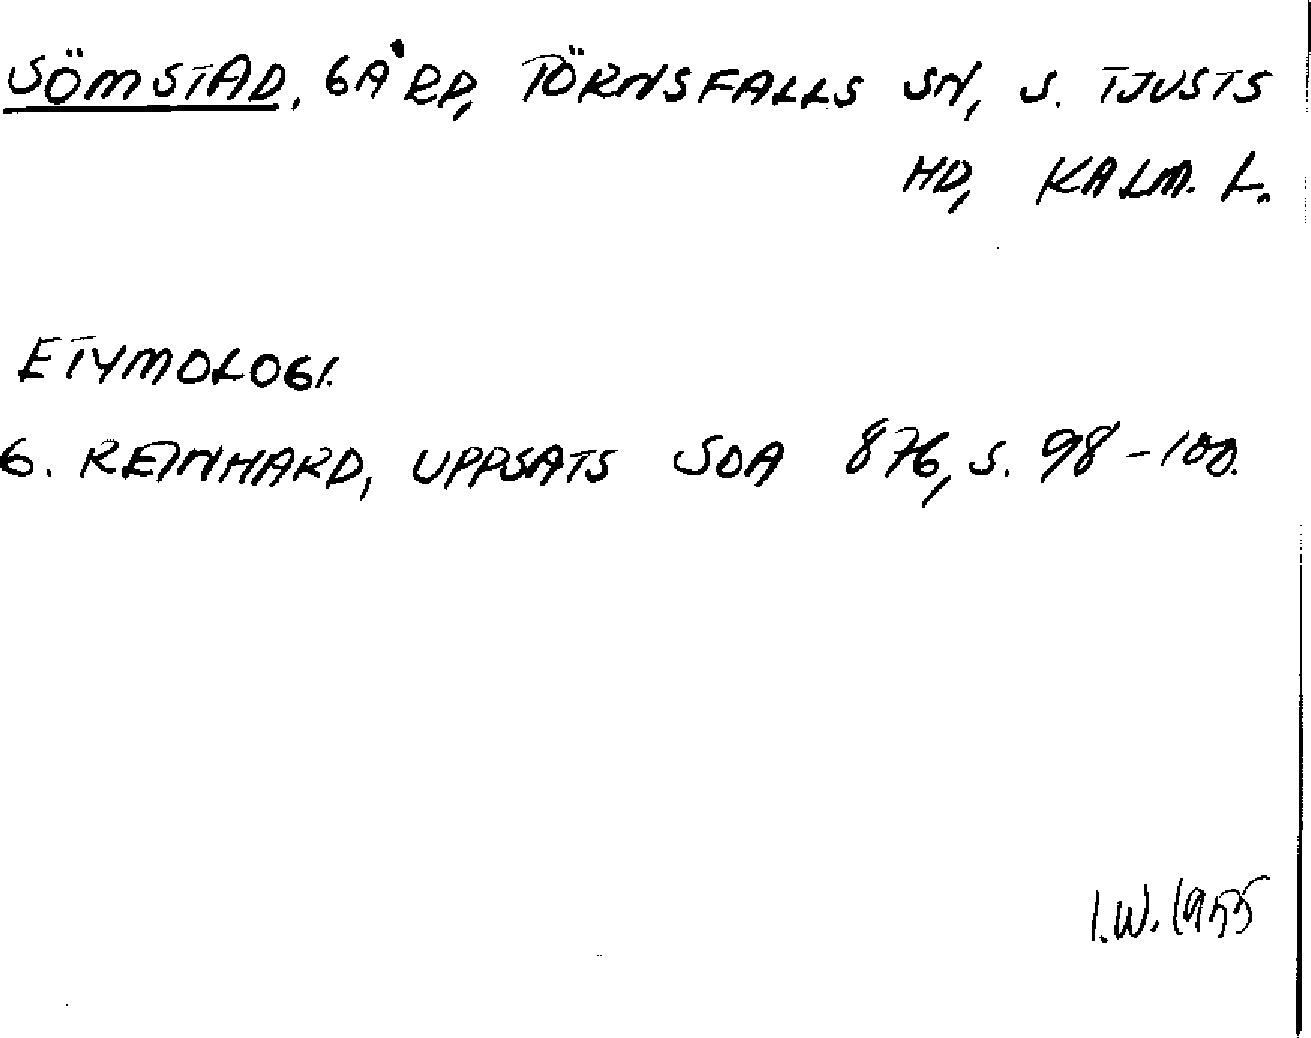 SÖMSTAD, GÅRD, TÖRNSFALLS SN, S. TJUSTS
HD, KALM. L.
ETYMOLOGI.
G. REINHARD, UPPSATS SOA 876, S. 98-100.
I.W. 1955